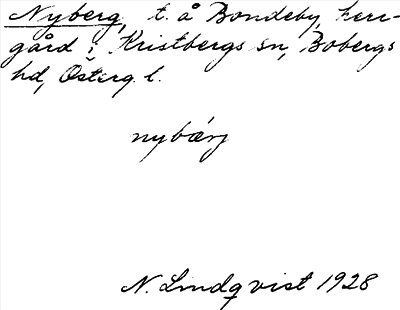 Nyberg, t. å Bondeby, herr-
gård i Kristbergs sn, Bobergs
hd, Österg. l.
nybærj
N. Lindqvist 1928